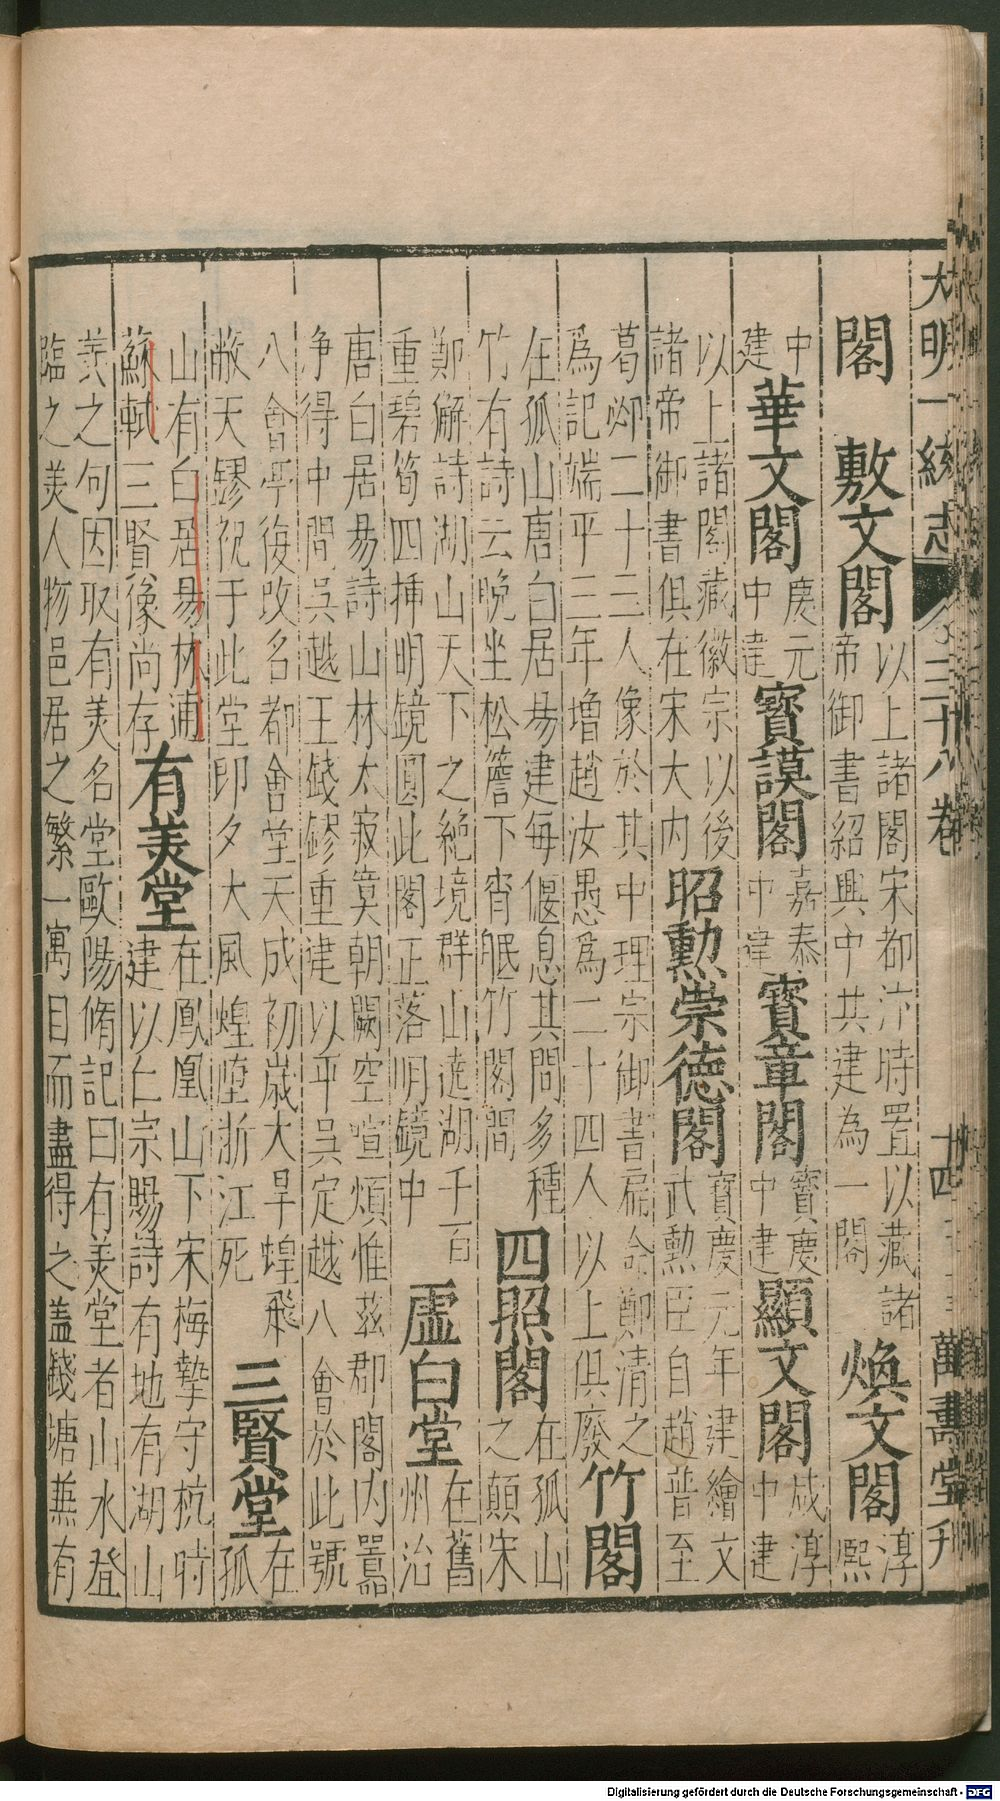 大明一統志 三十八卷 十四 萬壽堂刊
閣 敷文閣 以上諸閣宋都汴時置以藏諸
帝御書紹興中共建為一閣 煥文閣 淳
熙
中
建 華文閣 慶元
中建 寶謨閣 嘉泰
中建 寶章閣 寶慶
中建 顯文閣 咸淳
中建
以上諸閣藏徽宗以後
諸帝御書俱在宋大內 昭勲崇德閣 寶慶元年建繪文
武勲臣自趙普至
葛邲二十三人像於其中理宗御書扁命鄭清之
為記端平三年增趙汝愚為二十四人以上俱廢 竹閣
在孤山唐白居易建每偃息其間多種
竹有詩云晚坐松簷下宵眠竹閣間 四照閣 在孤山
之顛宋
鄭獬詩湖山天下之絶境群山遶湖千百
重碧筍四揷明鏡圓此閣正落明鏡中 虛白堂 在舊
州治
唐白居易詩山林太寂寞朝闕空喧煩惟茲郡閣內囂
净得中間吳越王錢鏐重建以平吳定越八會於此號
八會亭後改名都會堂天成初歲大旱蝗飛
敝天鏐祝于此堂卽夕大風蝗墮浙江死 三賢堂 在
孤
山有白居易林逋
蘇軾三賢像尚存 有美堂 在鳳凰山下宋梅摯守杭時
建以仁宗賜詩有地有湖山
羙之句因取有羙名堂歐陽脩記曰有羙堂者山水登
臨之羙人物邑居之繁一寓目而盡得之盖錢塘兼有
Digitalisierung gefördert durch die Deutsche Forschungsgemeinschaft - DFG